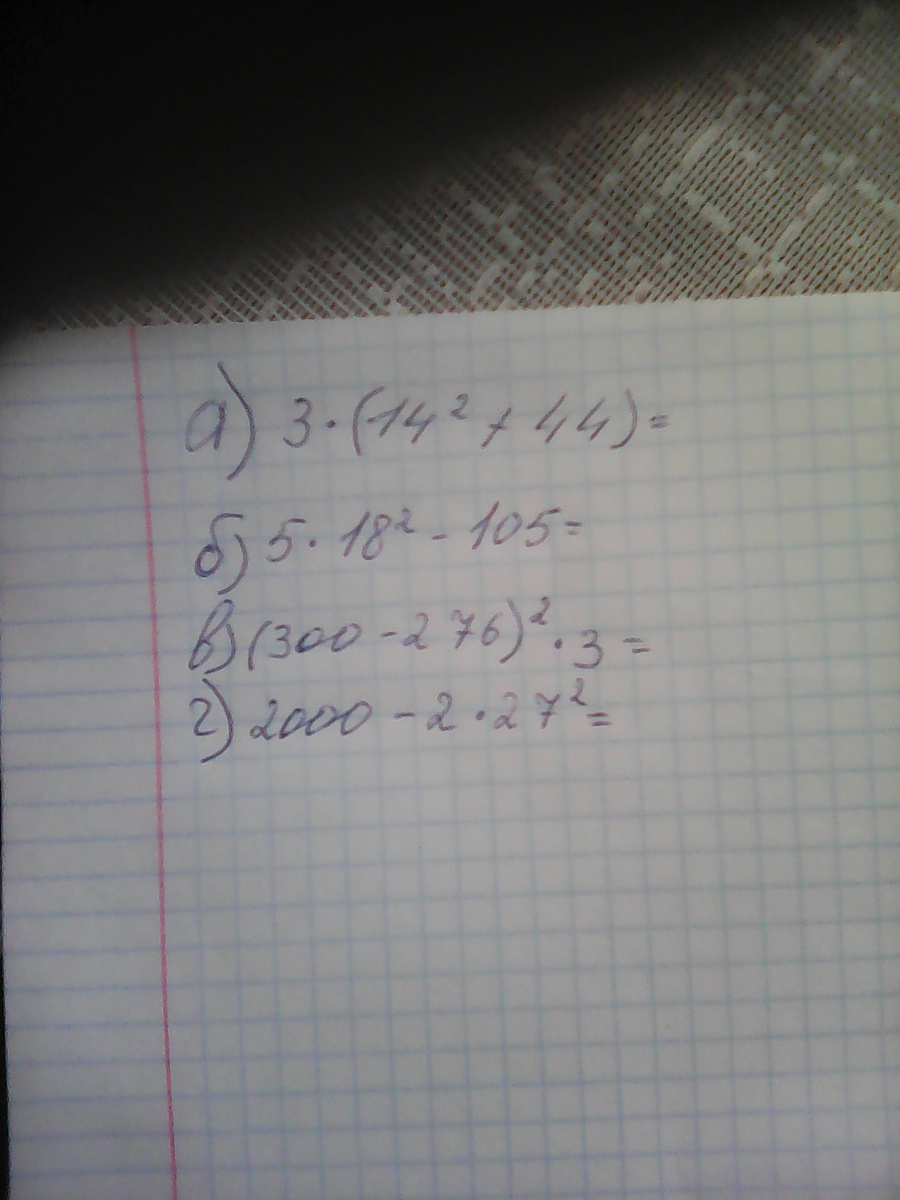 а) 3·(14² + 44)=
б) 5·18² - 105=
в) (300 - 276)²·3=
г) 2000 - 2·27²=